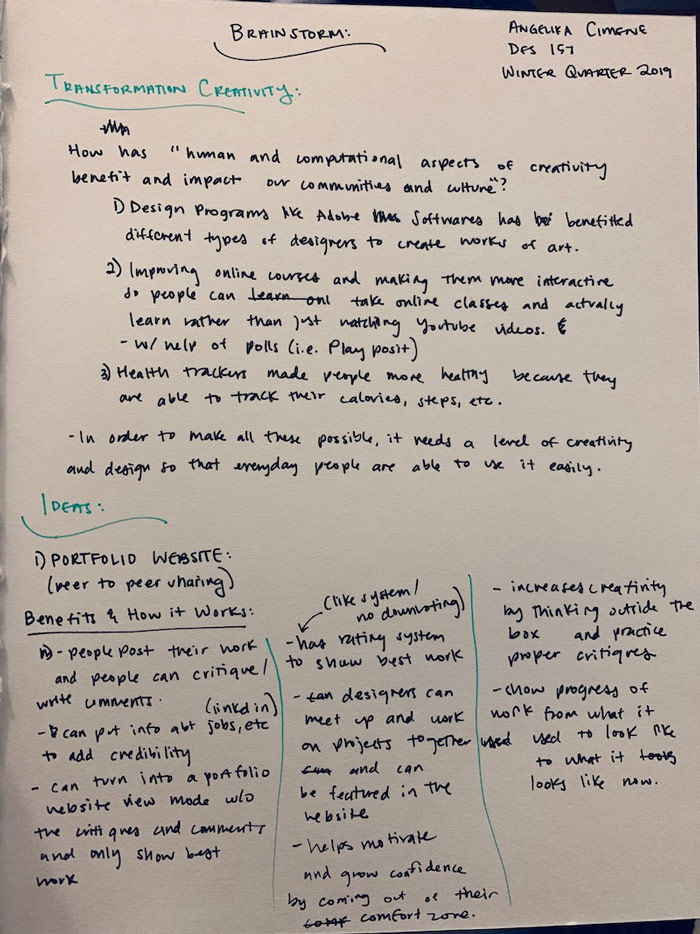 BRAINSTORM:
ANGELIKA CIMENE
DES 157
WINTER QUARTER 2019
TRANSFORMATION CREATIVITY:
How has "human and computational aspects of creativity
benefit and impact our communities and culture"?
1) Design Programs like Adobe Softwares has benefitted
different types of designers to create works of art.
2) Improving online courses and making them more interactive
so people can learn onl take online classes and actually
learn rather than just watching Youtube videos. &
- w/ help of polls (i.e. Play posit)
3) Health trackers made people more healthy because they
are able to track their calories, steps, etc.
- In order to make all these possible, it needs a level of creativity
and design so that everyday people are able to use it easily.
IDEAS:
1) PORTFOLIO WEBSITE:
(peer to peer sharing)
Benefits & How it Works:
- people post their work
and people can critique/
write comments.
(linkd in)
- can put info abt jobs, etc
to add credibility
- can turn into a portfolio
website view mode w/o
the critiques and comments
and only show best
work
(like system/
no downvoting)
- has rating system
to show best work
- can designers can
meet up and work
on projects together
and can
be featured in the
website
- helps motivate
and grow confidence
by coming out of their
comf comfort zone.
- increases creativity
by thinking outside the
box and practice
proper critiques
- show progress of
work from what it
used used to look like
to what it looks
looks like now.